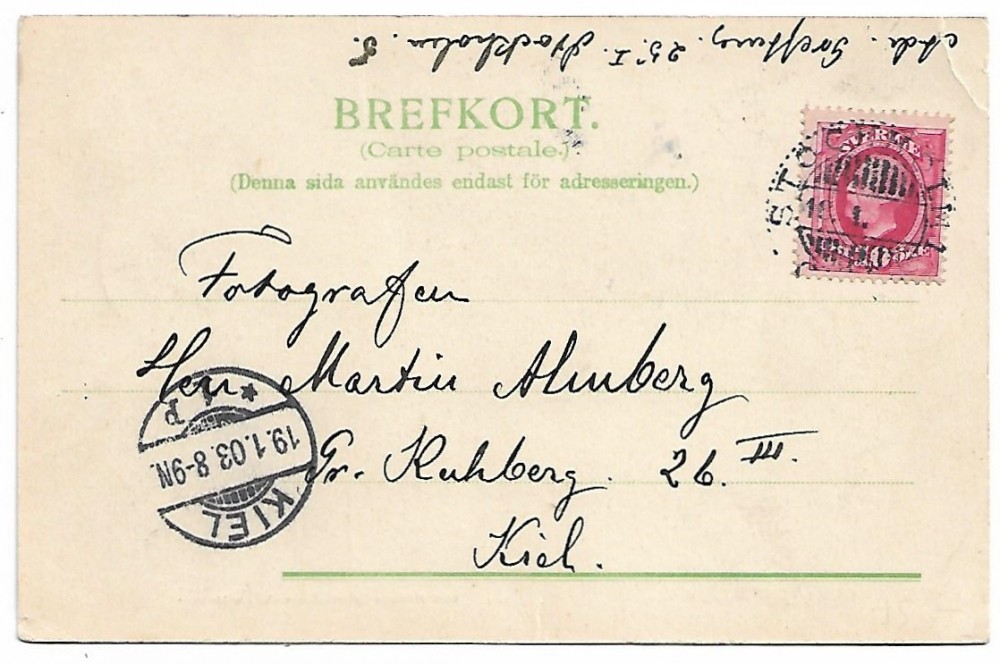 Stockholm. 5.
BREFKORT.
(Carte postale.)
(Denna sida användes endast för adresseringen.)
SVERIGE
10 ÖRE
STOCKHOLM
Fotografen
Herr Martin Almberg
Gr. Kuhberg. 26 III.
Kiel.
19.1.03. 8-9N.
KIEL